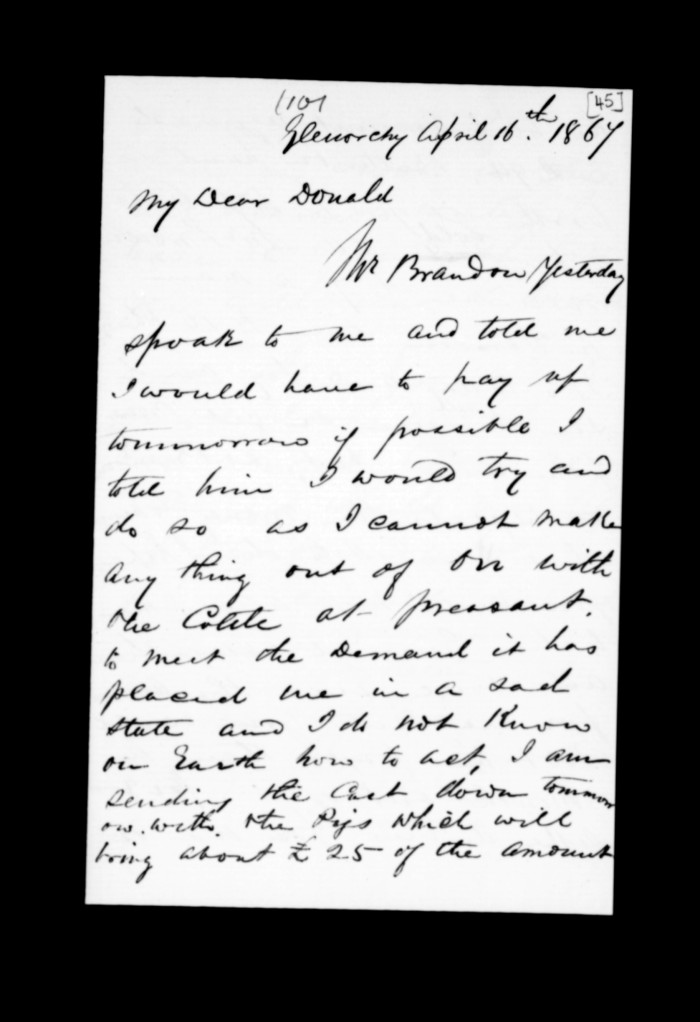 1101
[45]
Glenorchy April 16th. 1867
My Dear Donald
Mr Brandon Yesterday
spoak to me and told me
I would have to pay up
tommorrow if possible I
told him I would try and
do so as I cannot make
any thing out of with
the Cattle at preasant.
to meet the Demand it has
placed me in a sad
state and I do not Know
on Earth how to act, I am
sending the Cart down tommorr
ow. with. the Pigs which will
bring about £25 of the amount